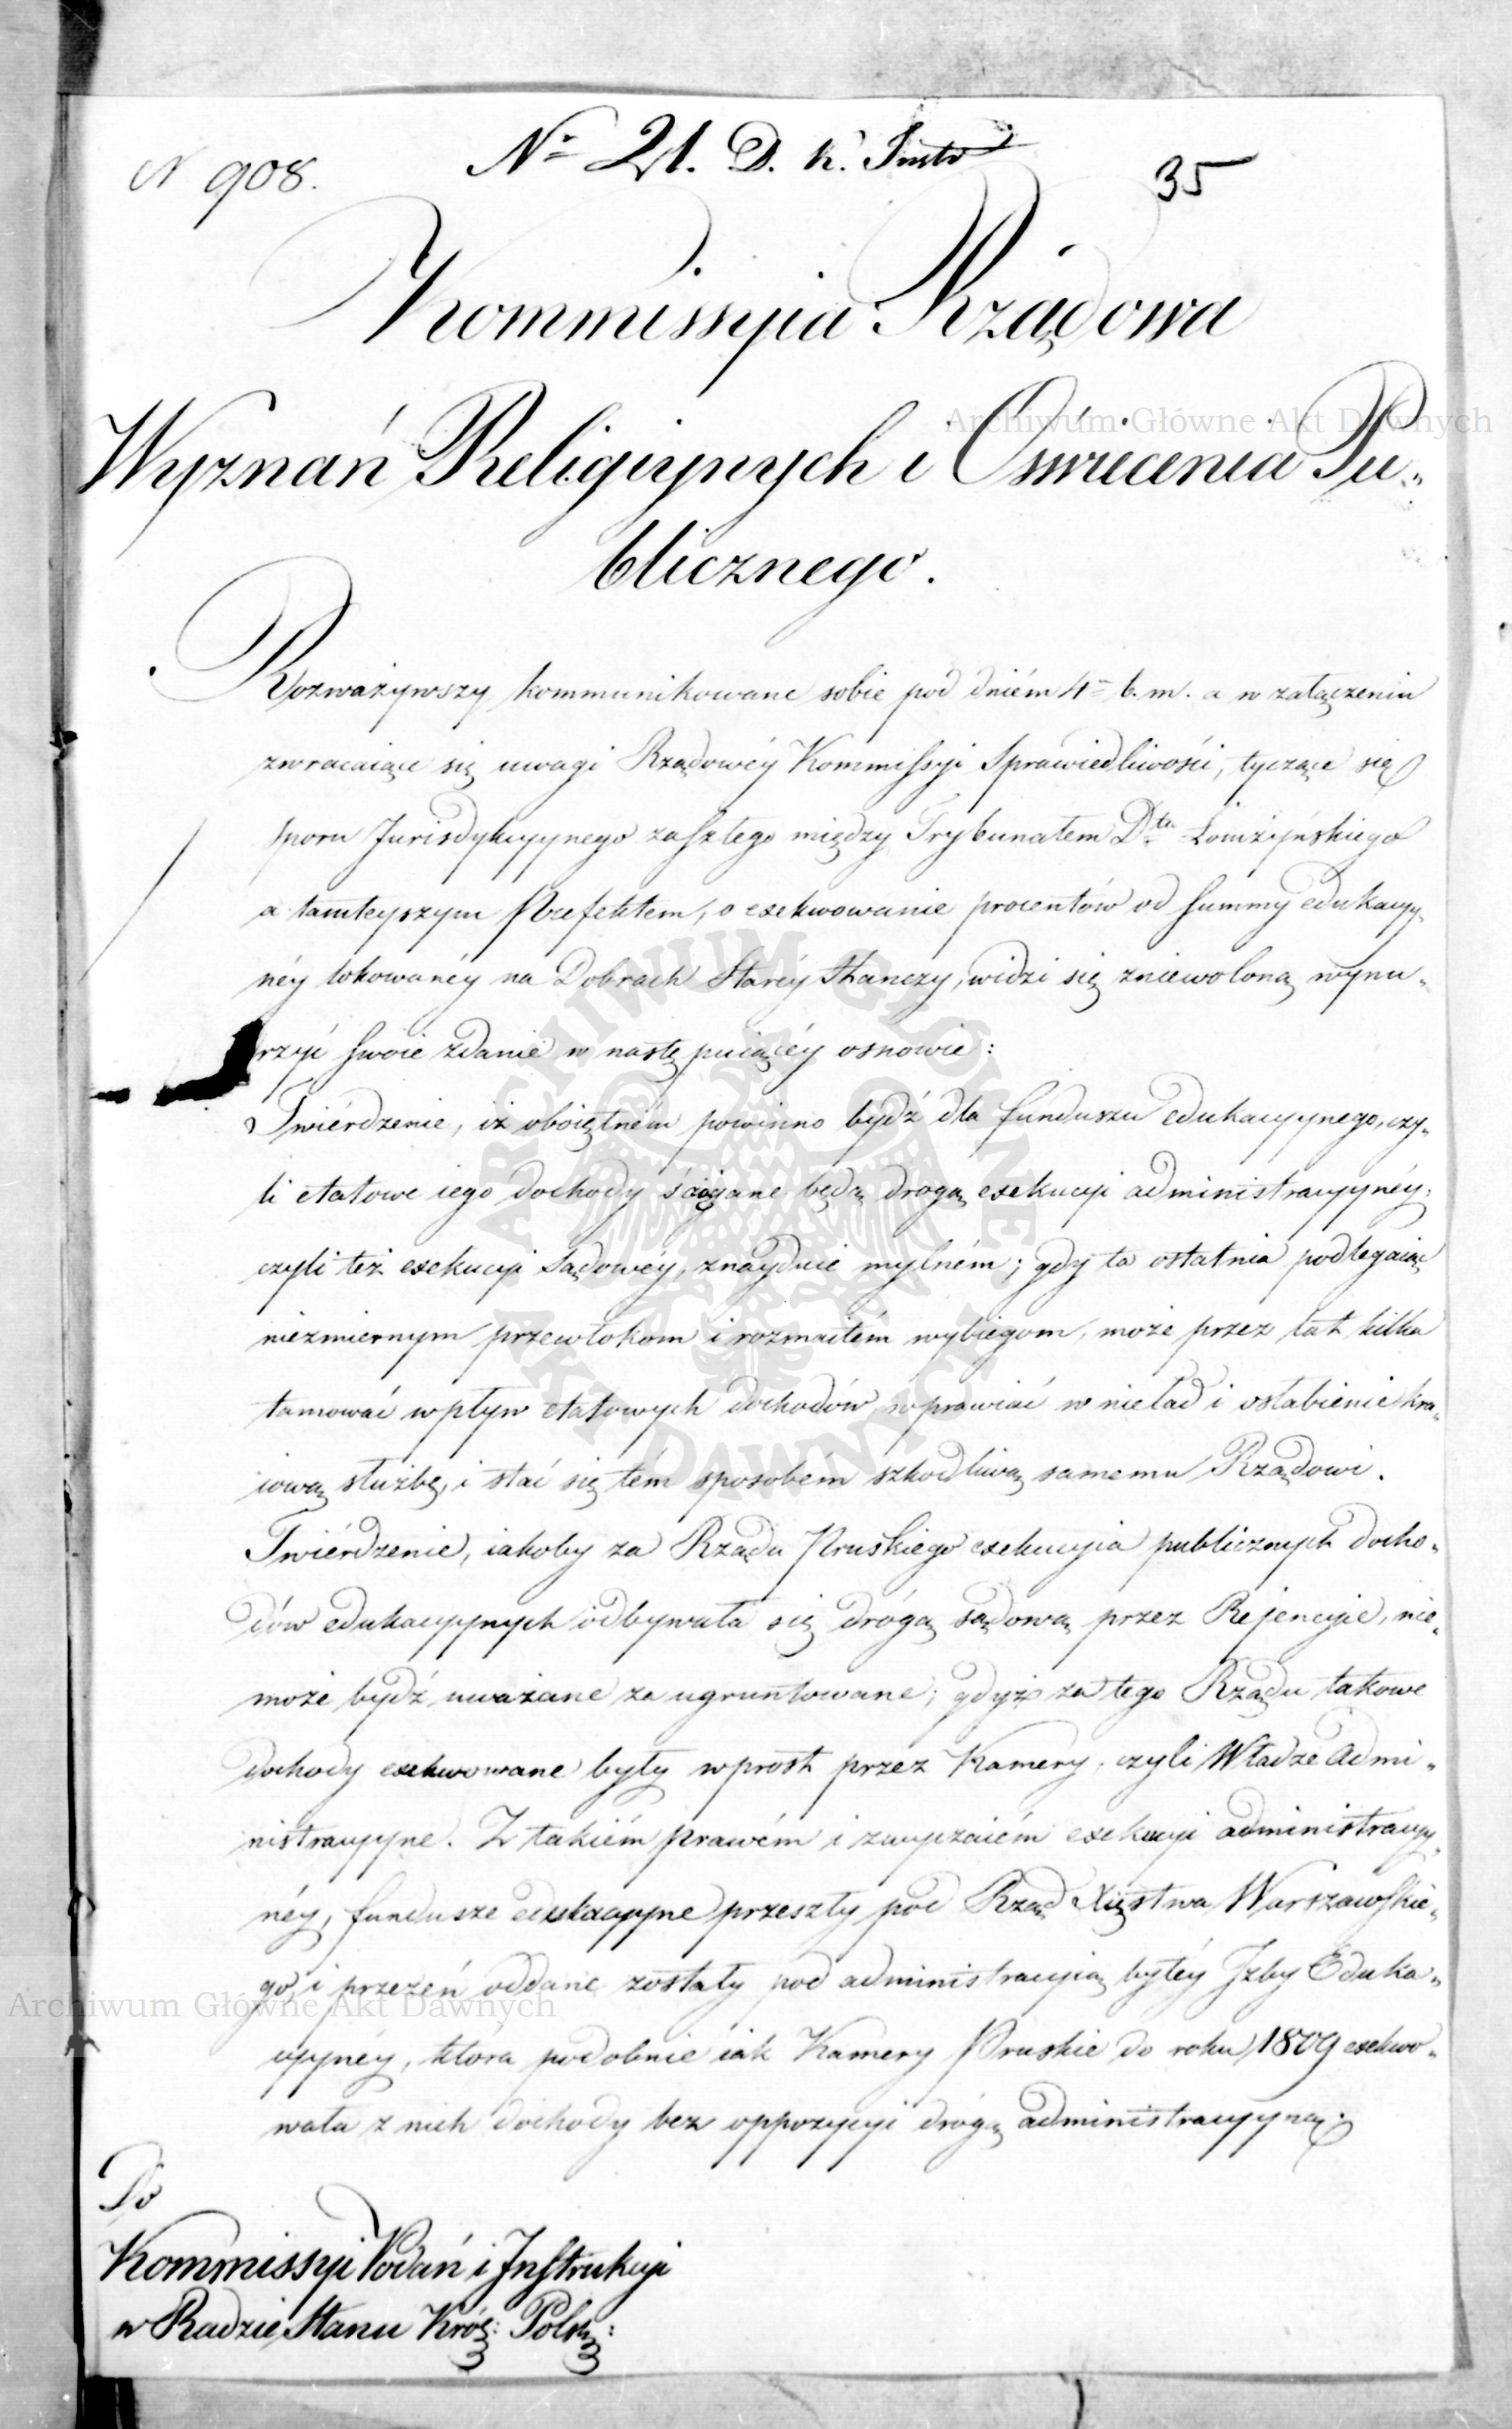 N 908.
Nr 21. D. K. Instr
35
Kommissyia Rządowa
Wyznań Religiynych i Oświecenia Pu„
blicznego.
Rozważywszy kommunikowane sobie pod dniém 4= b. m. a w załączeniu
zwracaiące się uwagi Rządowéy Kommissyi Sprawiedliwości, tyczące się
sporu Jurisdykcyynego zaszłego między Trybunałem Dttu Łomżyńskiego
a tamteyszym Prefektem, o exekwowanie procentów od summy edukacyy„
néy lokowanéy na Dobrach Staréy Hanczy, widzi się zniewoloną wynu„
rzyć swoie zdanie w nastę puiącéy osnowie:
Twiérdzenie, iż oboiętném powinno bydź dla funduszu edukacyynego, czy„
li etatowe iego dochody ściągane będą drogą exekucyi administracyynéy,
czyli też exekucyi Sądowéy, znayduie mylném; gdy ta ostatnia podlegaiąc
niezmiernym przewłokom i rozmaitém wybiegom, może przez lat kilka
tamować wpływ etatowych dochodów, wprawiać w nieład i osłabienie kra„
iową służbę, i stać się tém sposobém szkodliwą samemu Rządowi.
Twiérdzenie, iakoby za Rządu Pruskiego exekucyia publicznych docho„
dów edukacyynych odbywała się drógą sądową przez Rejencyie, nie„
może bydź uważane za ugruntowane; gdyż za tego Rządu takowe
dochody exekwowane były wprost przez Kamery, czyli Władze Admi„
nistracyyne. Z takiém prawém i zwyczaiém exekucyi administracyy„
néy, fundusze edukacyyne przeszły pod Rząd Xięstwa Warszawskie„
go, i przezeń oddane zostały pod administracyią byłéy Jzby Eduka„
cyynéy, która podobnie iak Kamery Pruskie do roku 1809 exekwo„
wała z nich dochody bez oppozycyi drógą administracyyną.
Do
Kommissyi Podań i Jnstrukcyi
w Radzie Stanu Król: Polsk:
Archiwum Główne Akt Dawnych
ARCHIWUM GŁÓWNE
AKT DAWNYCH
Archiwum Główne Akt Dawnych